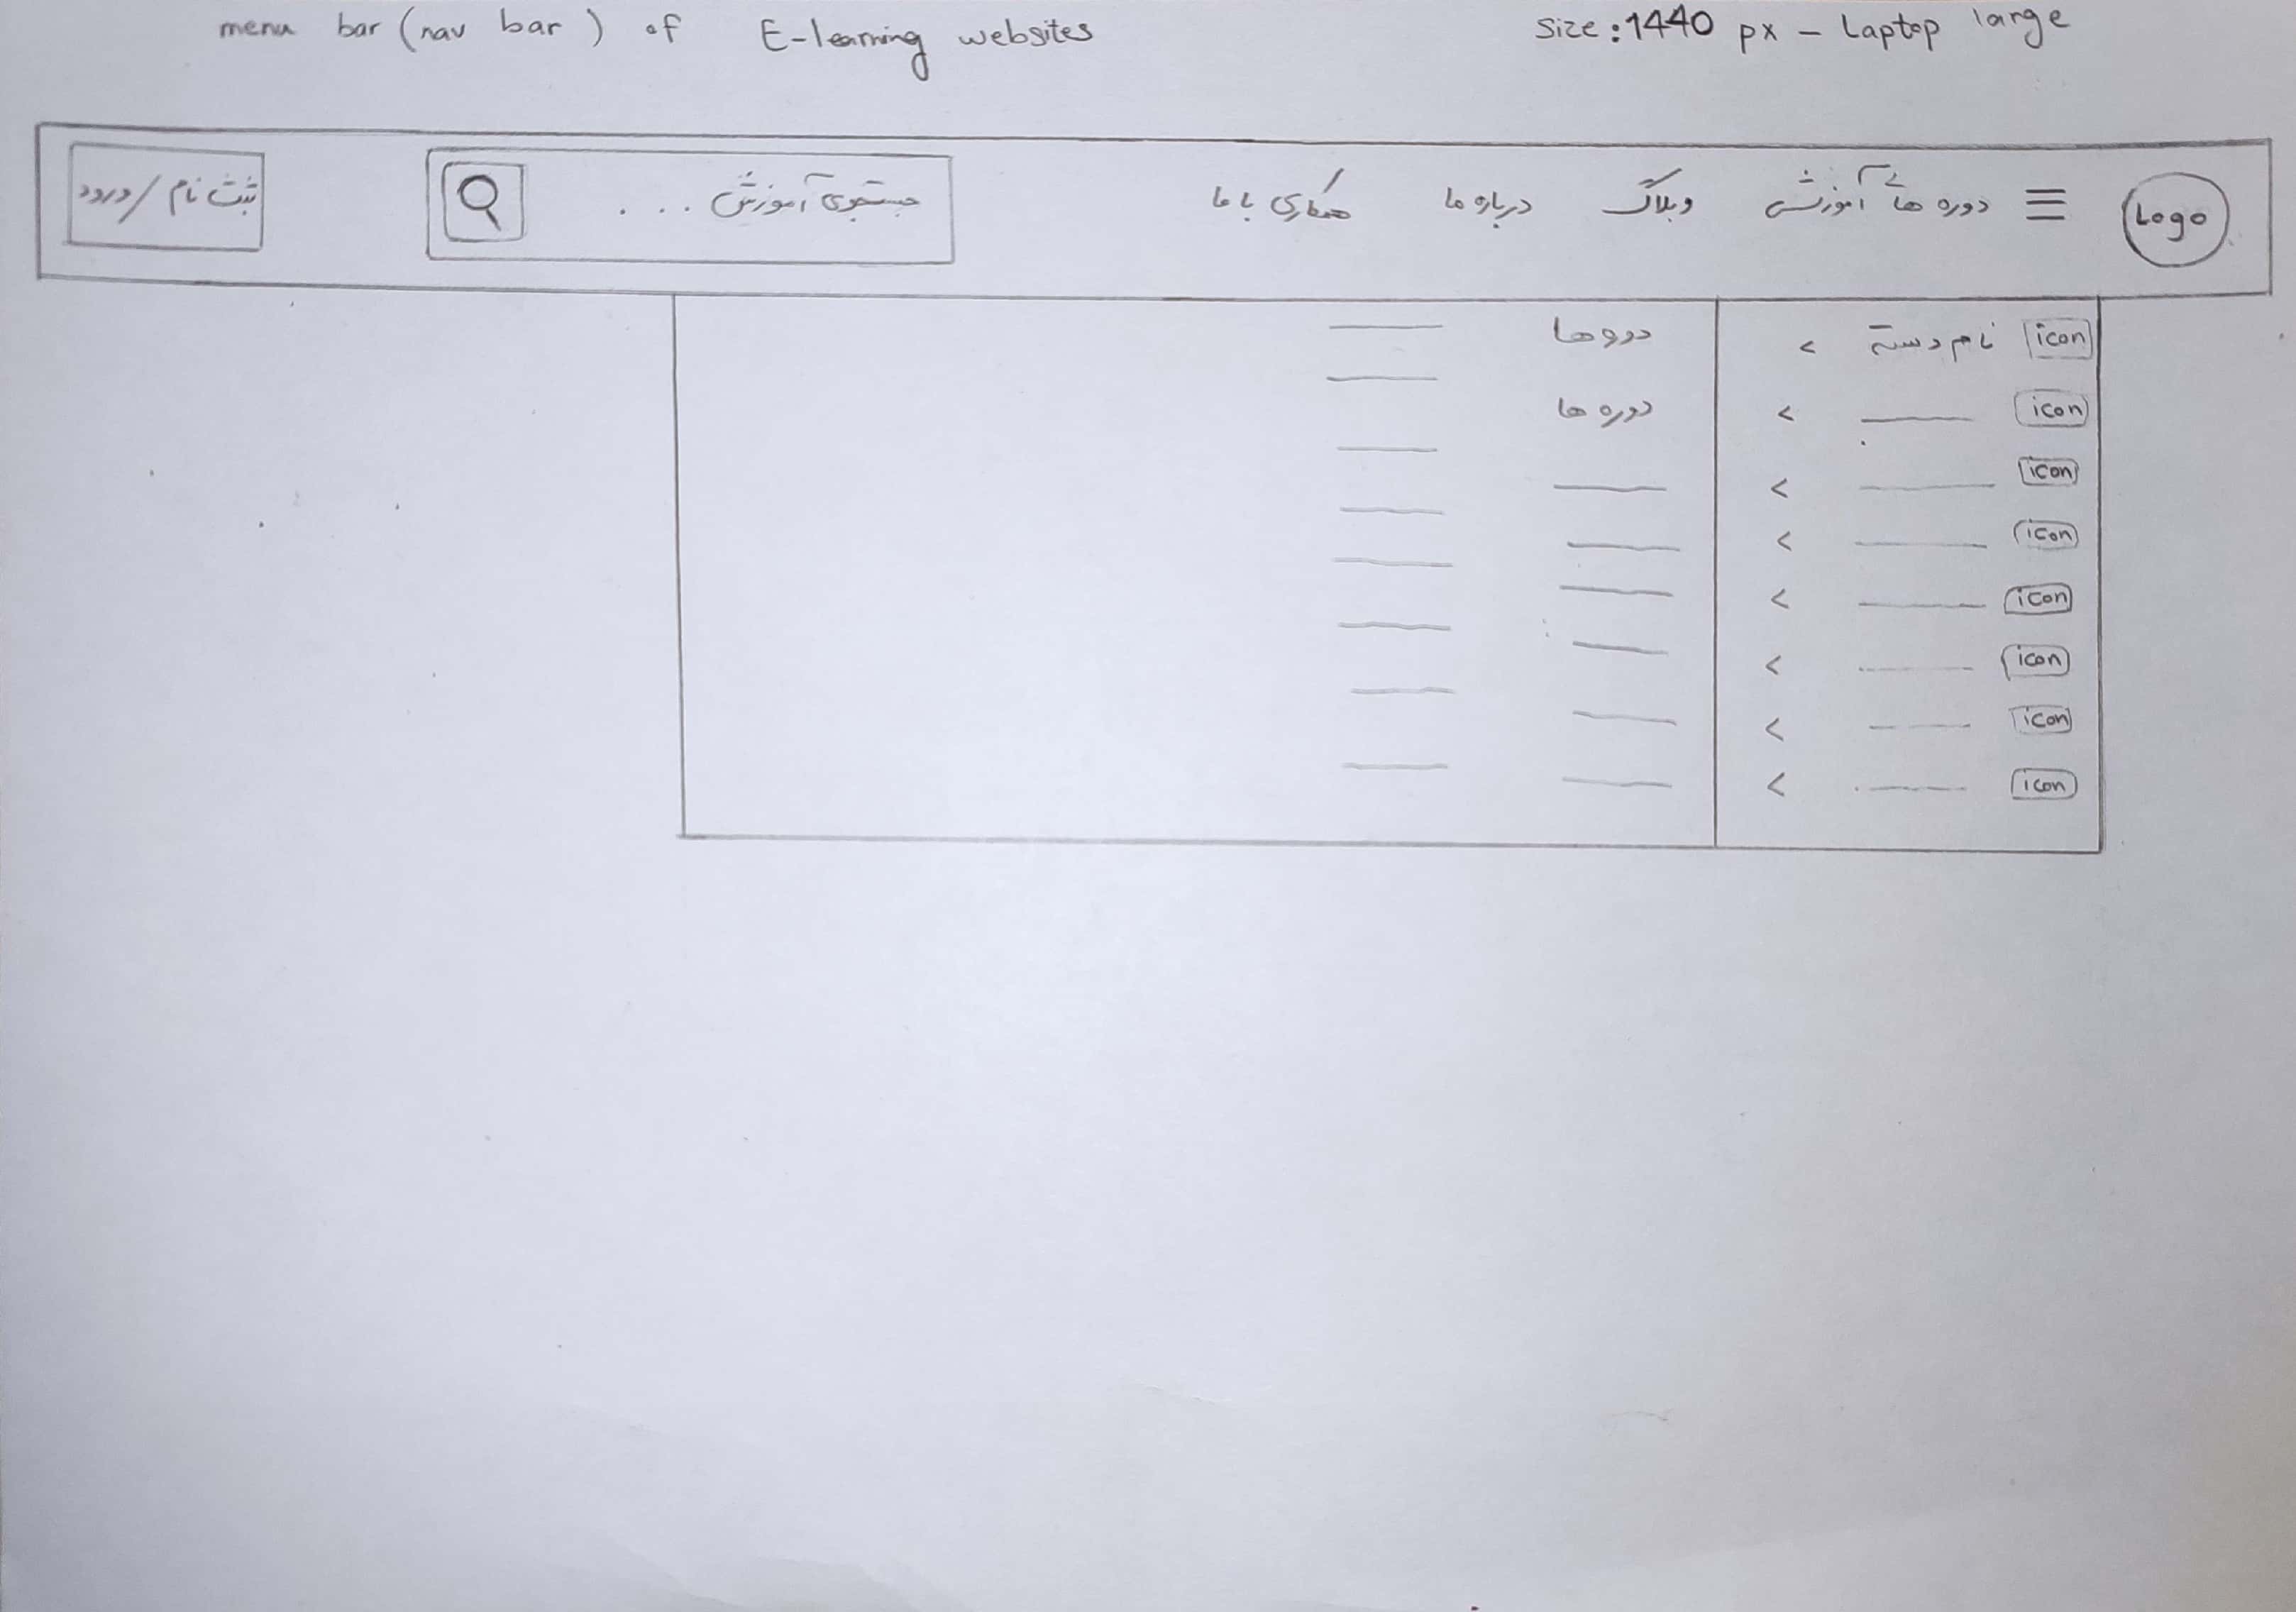 menu bar (nav bar) of E-learning websites
size: 1440 px - Laptop large
Logo
دوره های آموزشی
وبلاگ
درباره ما
همکاری با ما
جستجوی آموزش . . .
ثبت نام / ورود
icon نام دسته <
دوره ها
icon <
دوره ها
icon <
icon <
icon <
icon <
icon <
icon <